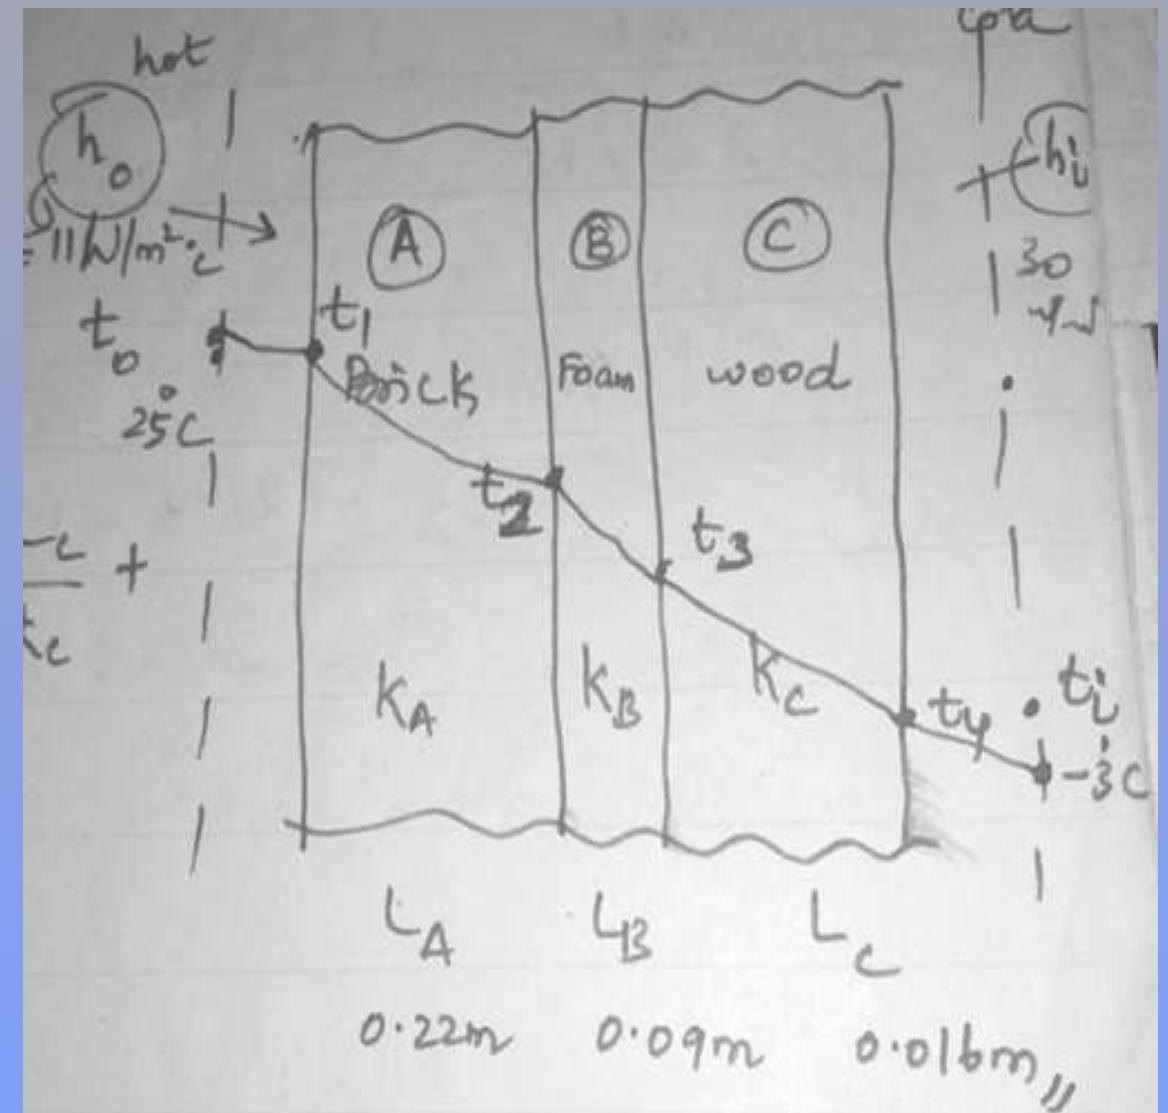 hot
h₀
= 11 W/m²·c
hi
30
A
B
C
t₀
25°C
t₁
Brick
Foam
wood
t₂
t₃
+
KA
KB
KC
t₄
ti
-3°C
LA
LB
LC
0.22m
0.09m
0.016m